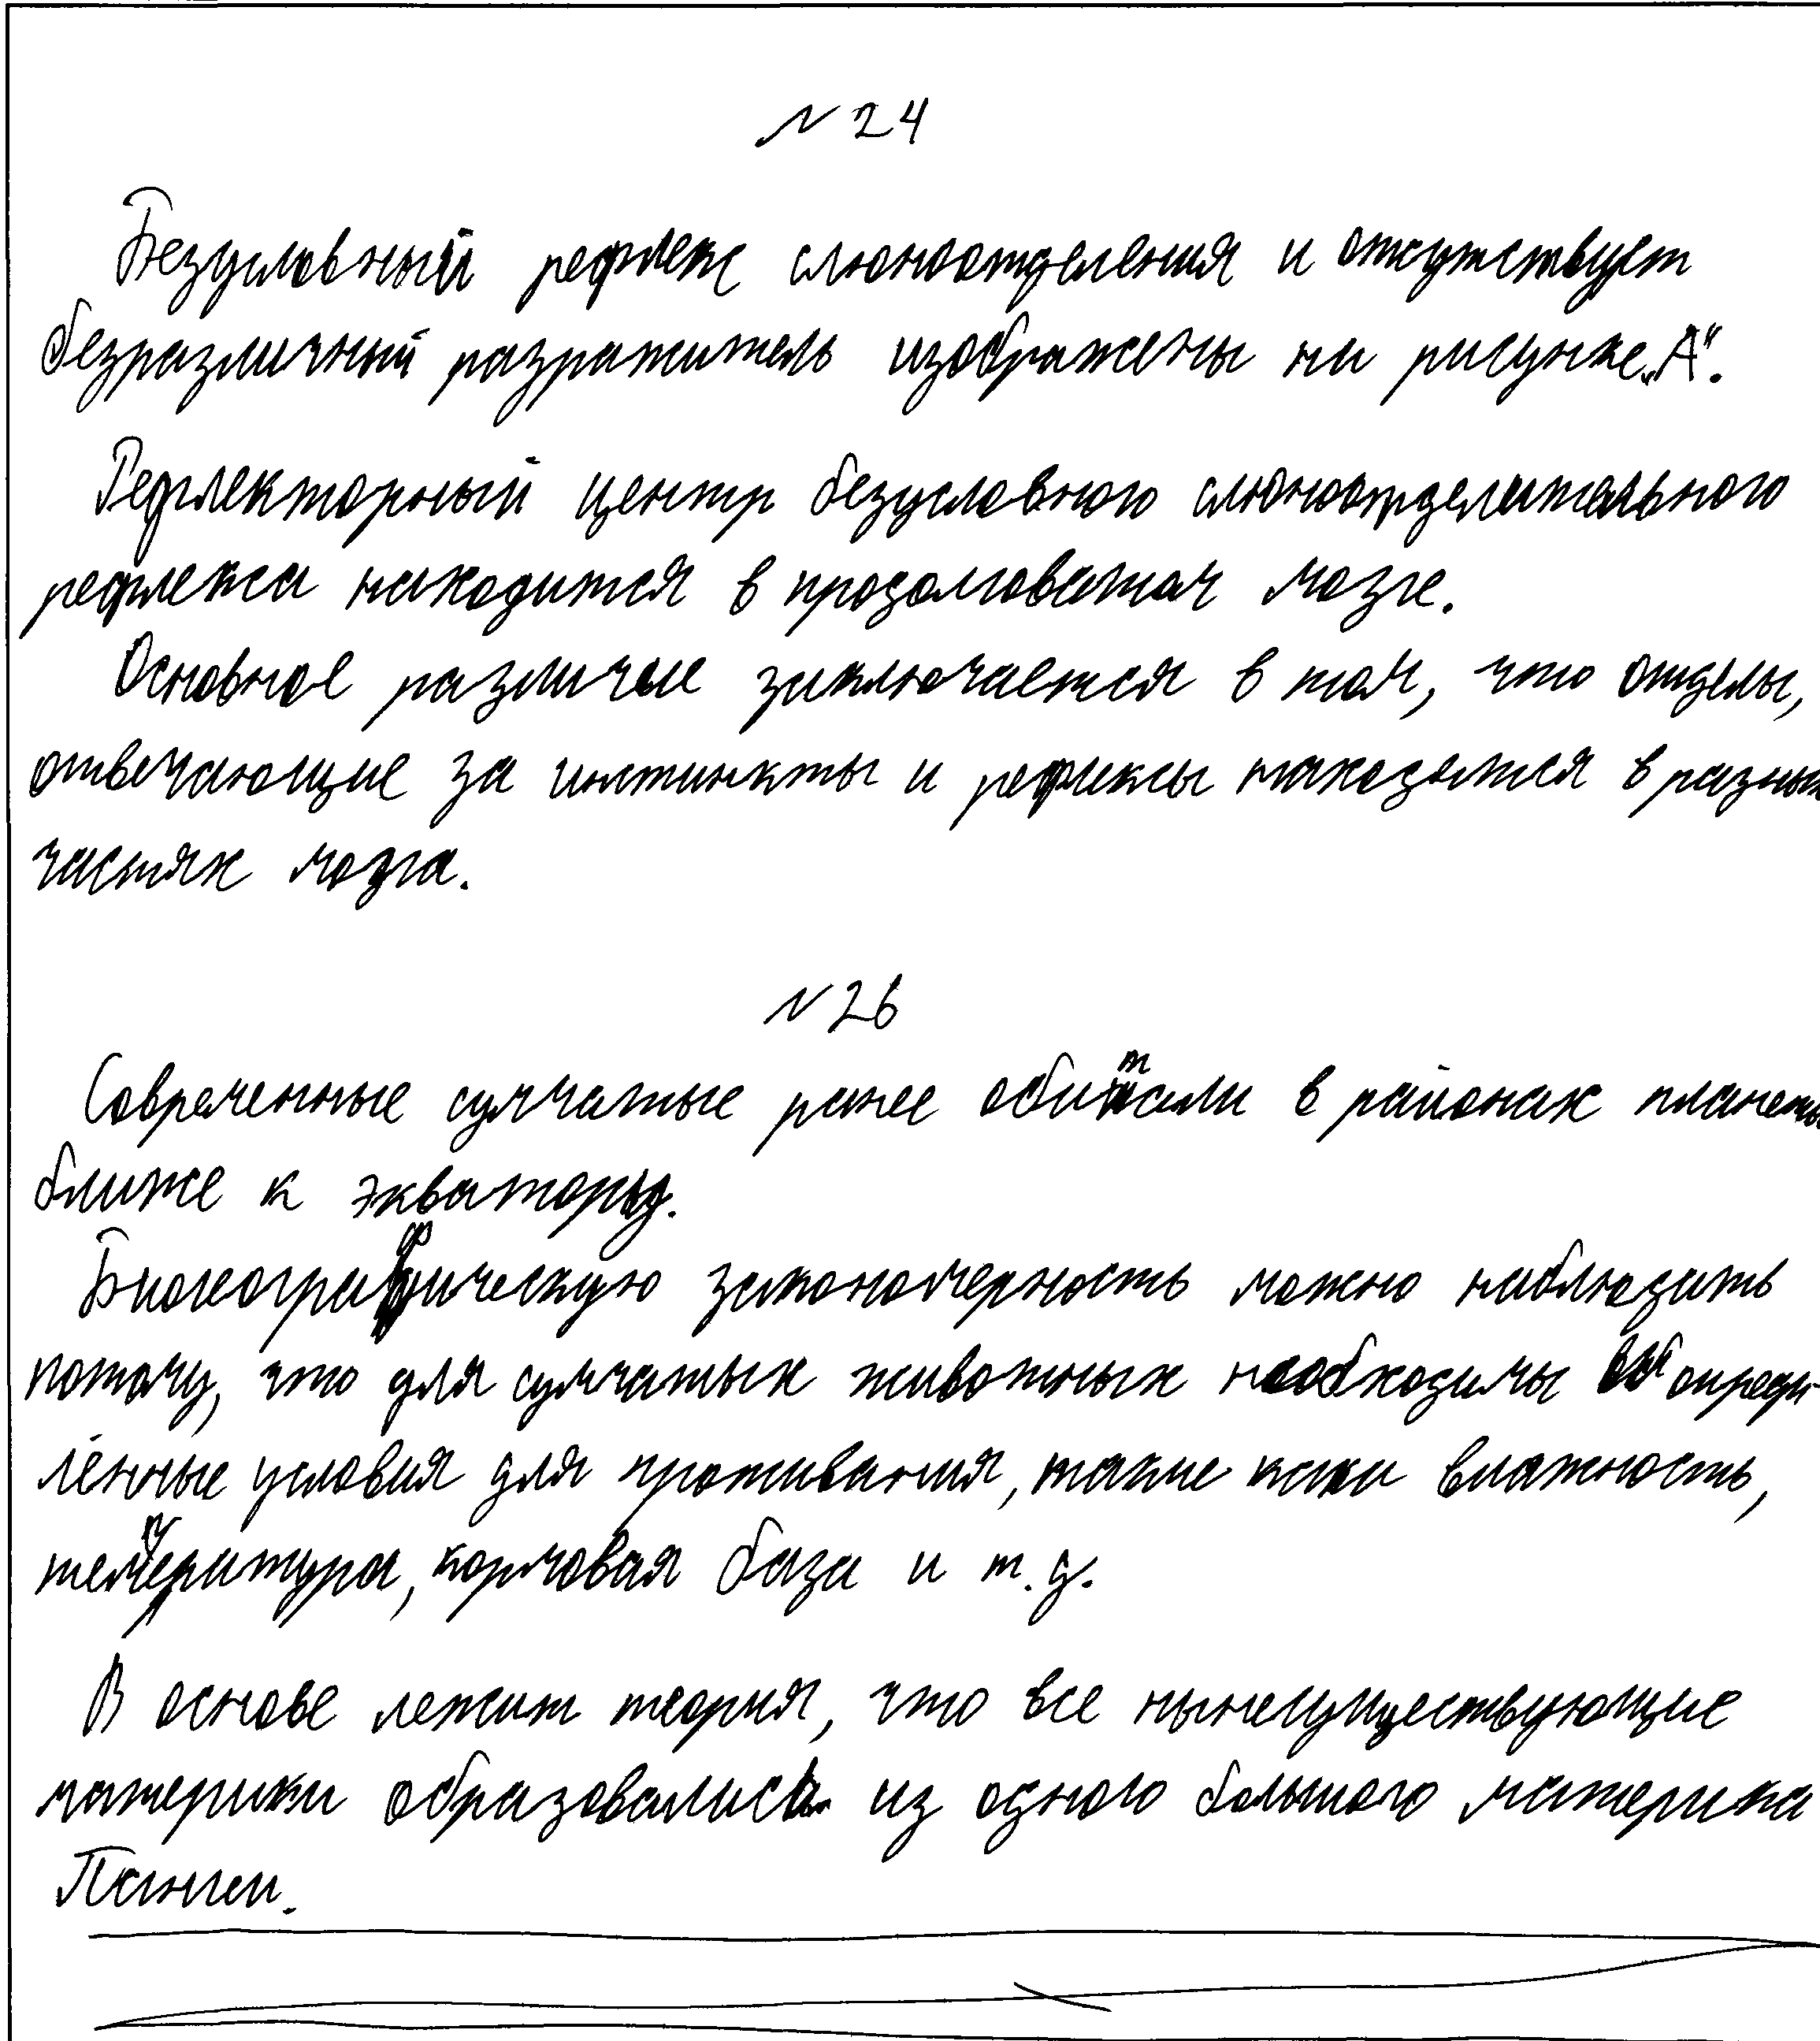 № 24
Безусловный рефлекс слюноотделения и отсутствует
безразличный разражитель изображены на рисунке „А".
Рефлекторный центр безусловного слюноотделительного
рефлекса находится в продолговатом мозге.
Основное различие заключается в том, что отделы,
отвечающие за инстинкты и рефлексы находятся в разных
частях мозга.
№ 26
Современные сумчатые ранее обитали в районах планеты
ближе к экватору.
Биогеографическую закономерность можно наблюдать
потому, что для сумчатых животных необходимы опреде-
лённые условия для проживания, такие как влажность,
температура, кормовая база и т.д.
В основе лежит теория, что все нынесуществующие
материки образовались из одного большого материка
Пангеи.